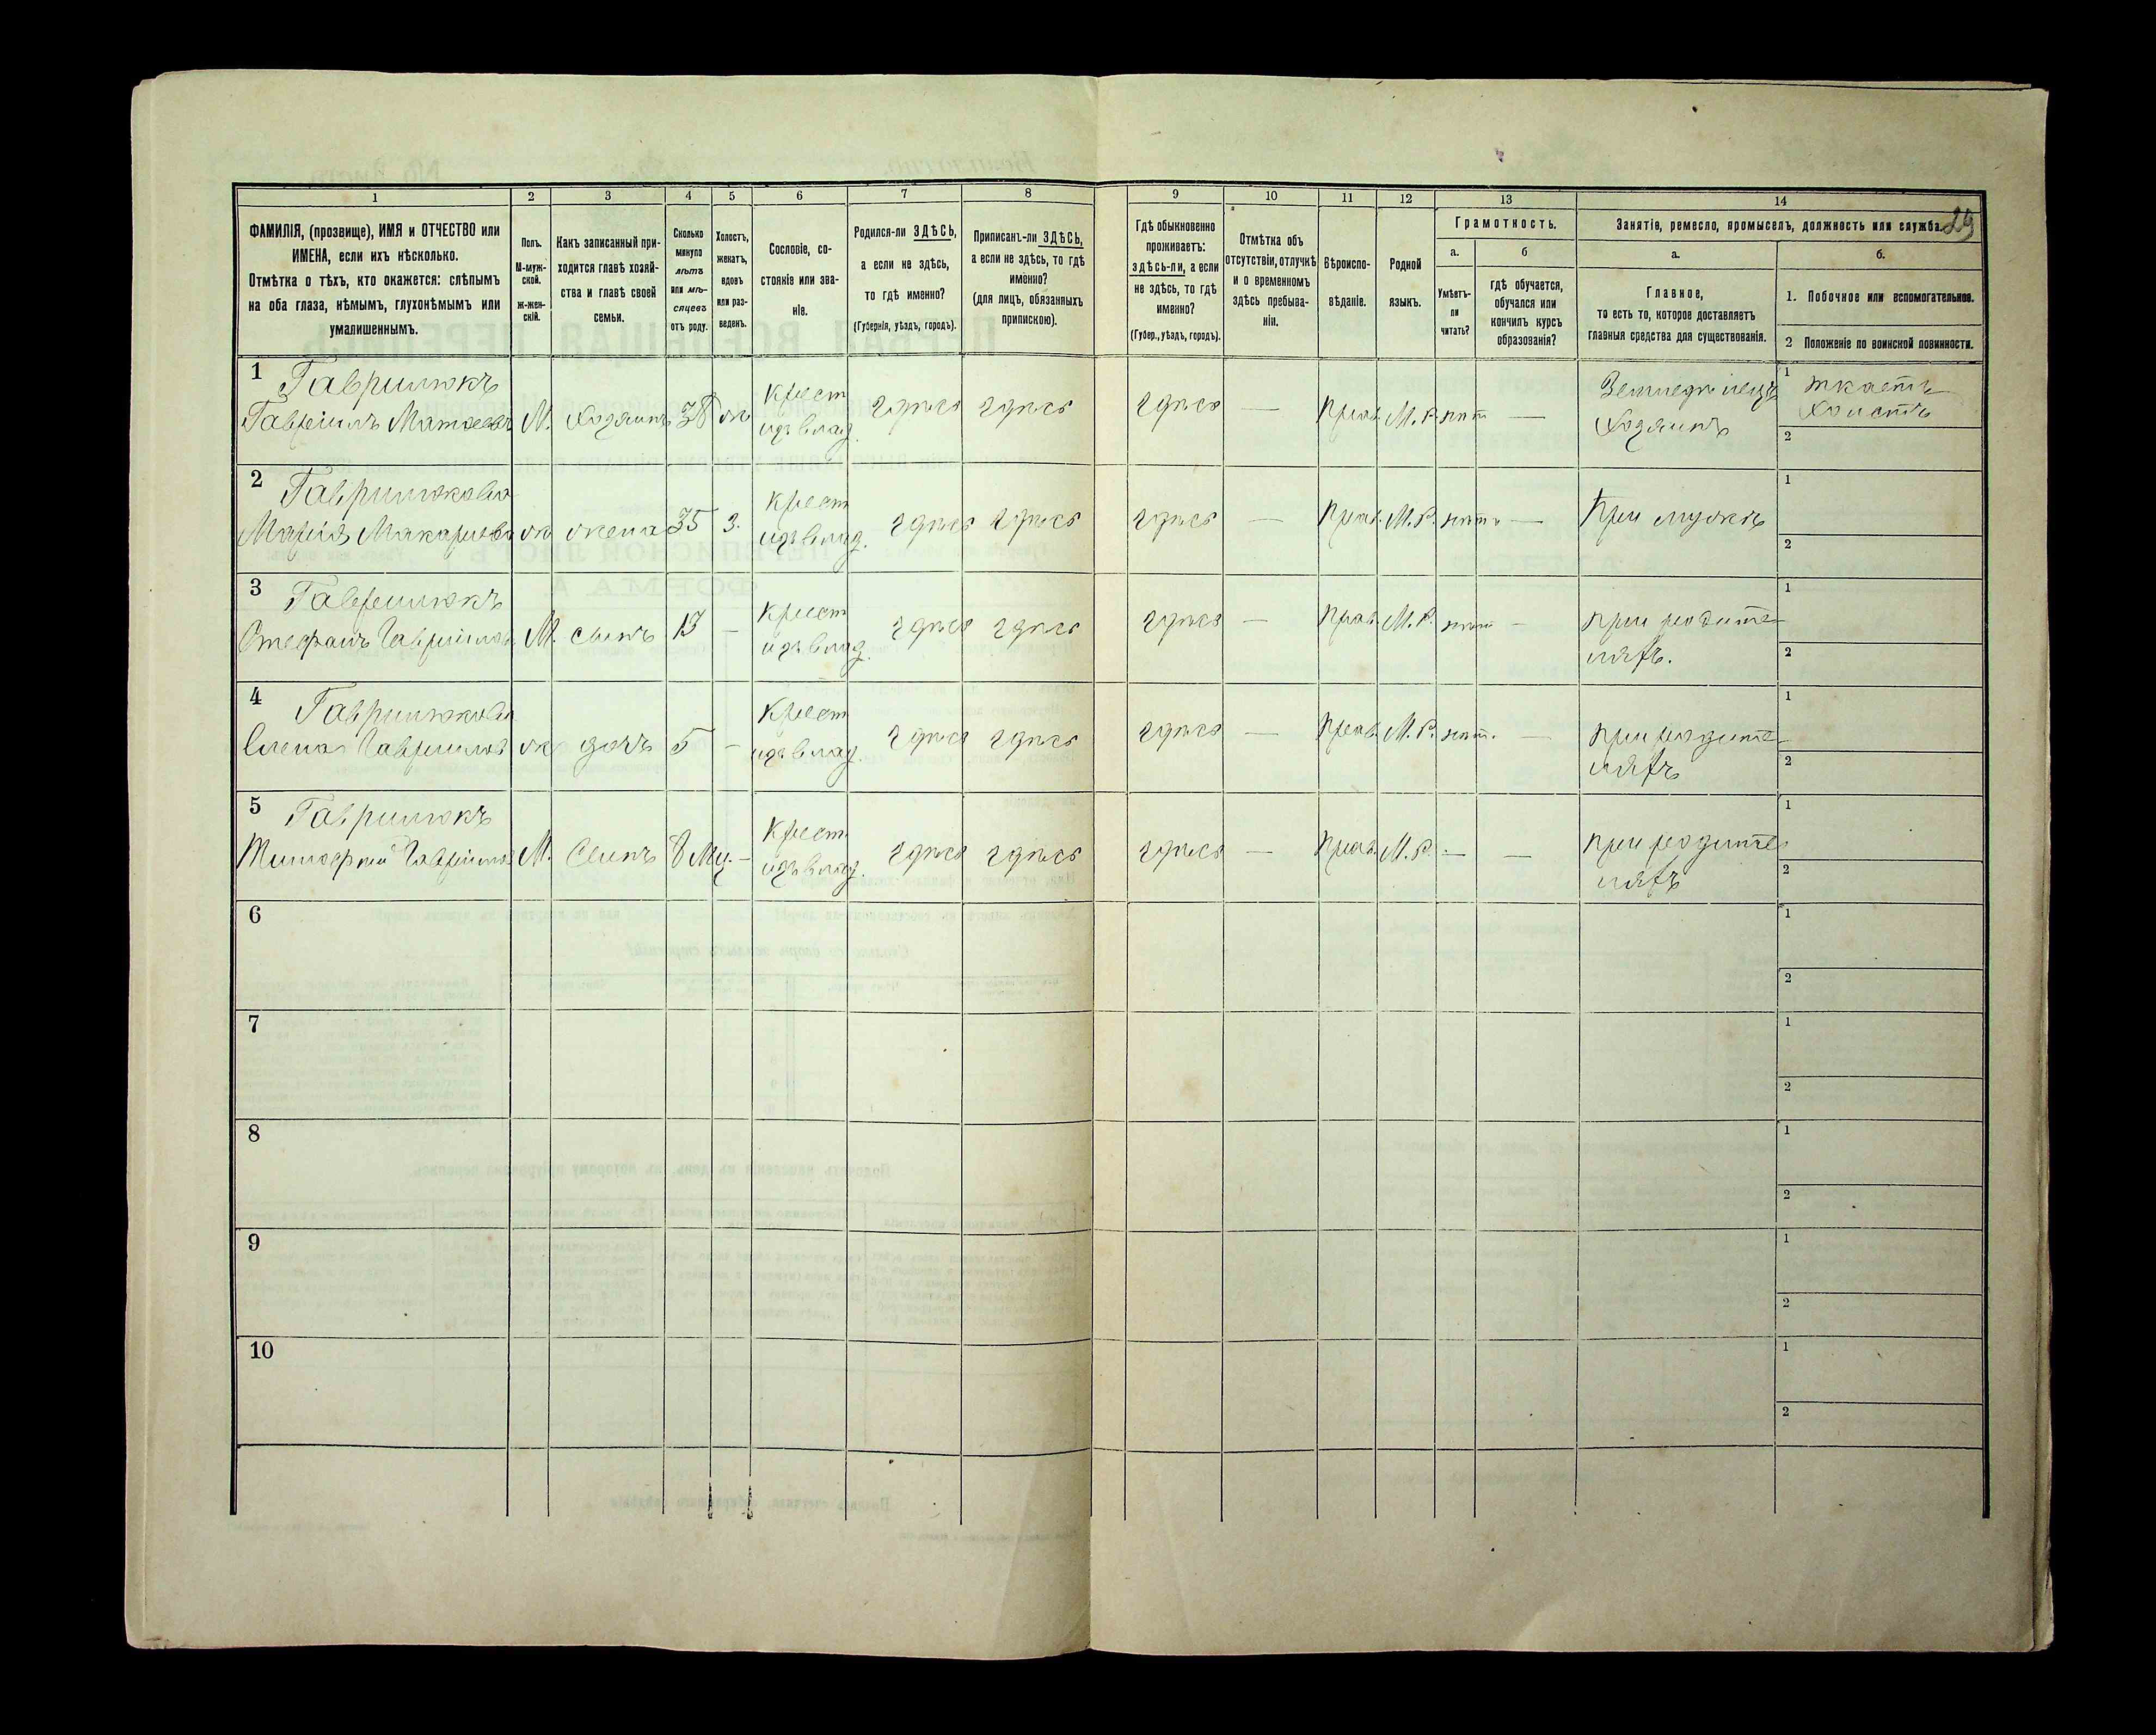 1 2 3 4 5 6 7 8 9 10 11 12 13 14
29
ФАМИЛІЯ, (прозвище), ИМЯ и ОТЧЕСТВО или
ИМЕНА, если ихъ нѣсколько.
Отмѣтка о тѣхъ, кто окажется: слѣпымъ
на оба глаза, нѣмымъ, глухонѣмымъ или
умалишеннымъ.
Полъ.
М-муж-
ской.
ж-жен-
скій.
Какъ записанный при-
ходится главѣ хозяй-
ства и главѣ своей
семьи.
Сколько
минуло
лѣтъ
или мѣ-
сяцевъ
отъ роду.
Холостъ,
женатъ,
вдовъ
или раз-
веденъ.
Сословіе, со-
стояніе или зва-
ніе.
Родился-ли ЗДѢСЬ,
а если не здѣсь,
то гдѣ именно?
(Губернія, уѣздъ, городъ).
Приписанъ-ли ЗДѢСЬ,
а если не здѣсь, то гдѣ
именно?
(для лицъ, обязанныхъ
припискою).
Гдѣ обыкновенно
проживаетъ:
здѣсь-ли, а если
не здѣсь, то гдѣ
именно?
(Губер., уѣздъ, городъ).
Отмѣтка объ
отсутствіи, отлучкѣ
и о временномъ
здѣсь пребыва-
ніи.
Вѣроиспо-
вѣданіе.
Родной
языкъ.
Грамотность.
а.
Умѣетъ-
ли
читать?
б
гдѣ обучается,
обучался или
кончилъ курсъ
образованія?
Занятіе, ремесло, промыселъ, должность или служба.
а.
Главное,
то есть то, которое доставляетъ
главныя средства для существованія.
б.
1. Побочное или вспомогательное.
2 Положеніе по воинской повинности.
1 Гаврилюкъ
Гавріилъ Матвеевъ М. Хозяинъ 38 ж Крест
изъ влад. здѣсь здѣсь здѣсь — Прав. М.Р. нѣт —
Земледѣлецъ
Хозяинъ
1 ткаетъ
холстъ
2
2 Гаврилюкова
Марія Макариева ж жена 35 З. Крест
изъ влад. здѣсь здѣсь здѣсь — Прав. М.Р. нѣтъ —
При мужѣ
1
2
3 Гаврилюкъ
Стефанъ Гавриилов М. сынъ 13 — Крест
изъ влад. здѣсь здѣсь здѣсь — Прав. М.Р. нѣт —
при родите-
ляхъ.
1
2
4 Гаврилюкова
Елена Гавриилов ж дочь 5 — Крест
изъ влад. здѣсь здѣсь здѣсь — Прав. М.Р. нѣт. —
при родите-
ляхъ
1
2
5 Гаврилюкъ
Тимофей Гавриилов М. Сынъ 8 Мц. — Крест
изъ влад. здѣсь здѣсь здѣсь — Прав. М.Р. — —
при родите-
ляхъ
1
2
6
1
2
7
1
2
8
1
2
9
1
2
10
1
2